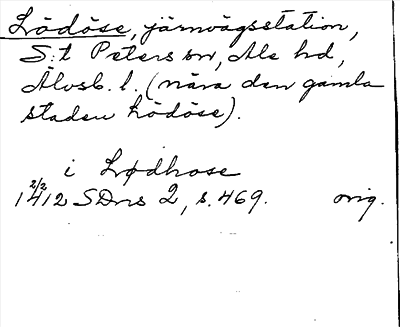 Lödöse, järnvägsstation,
S:t Peters sn, Ale hd,
Älvsb. l. (nära den gamla
staden Lödöse).
i Lødhose
2/2
1412 SDns 2, s. 469. orig.